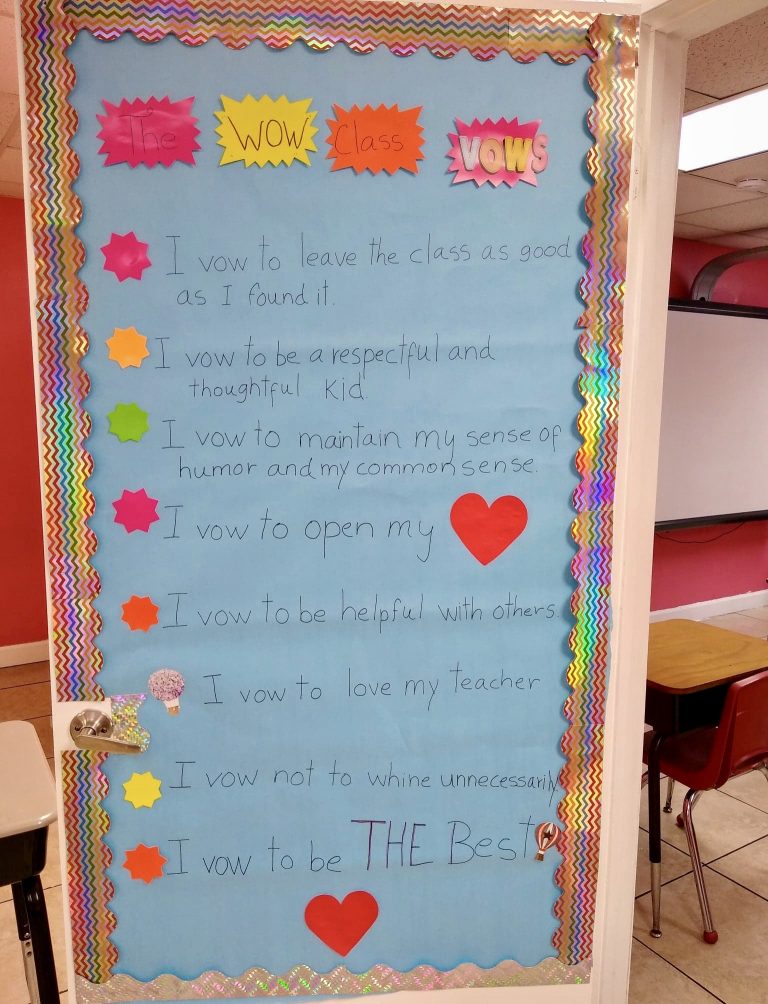 The WOW Class VOWS
I vow to leave the class as good
as I found it.
I vow to be a respectful and
thoughtful kid
I vow to maintain my sense of
humor and my common sense.
I vow to open my
I vow to be helpful with others.
I vow to love my teacher
I vow not to whine unnecessarily
I vow to be THE Best